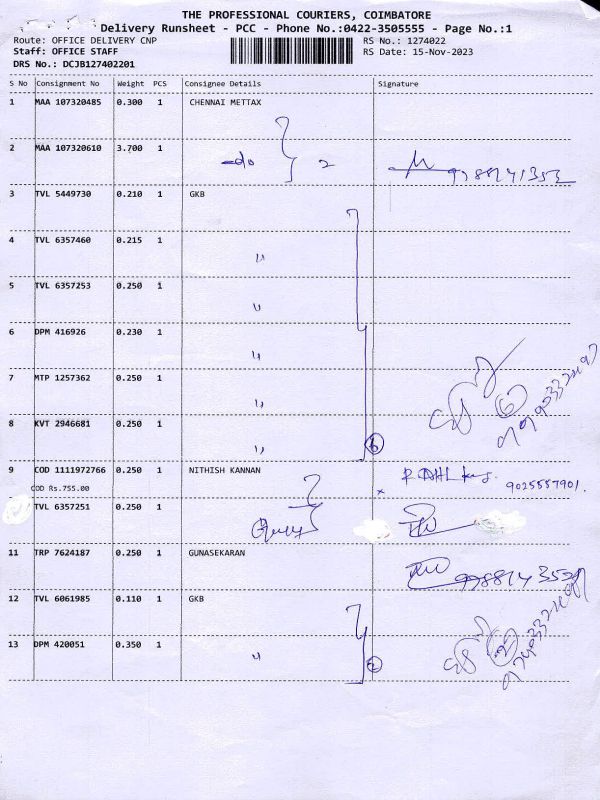 THE PROFESSIONAL COURIERS, COIMBATORE
Delivery Runsheet - PCC - Phone No.:0422-3505555 - Page No.:1
Route: OFFICE DELIVERY CNP RS No.: 1274022
Staff: OFFICE STAFF RS Date: 15-Nov-2023
DRS No.: DCJB127402201
S No Consignment No Weight PCS Consignee Details Signature
1 MAA 107320485 0.300 1 CHENNAI METTAX
2 MAA 107320610 3.700 1 -do 2
3 TVL 5449730 0.210 1 GKB
4 TVL 6357460 0.215 1 "
5 TVL 6357253 0.250 1 "
6 DPM 416926 0.230 1 "
7 MTP 1257362 0.250 1 "
8 KVT 2946681 0.250 1 " 6
9 COD 1111972766 0.250 1 NITHISH KANNAN
COD Rs.755.00 9025557901.
TVL 6357251 0.250 1
11 TRP 7624187 0.250 1 GUNASEKARAN
12 TVL 6061985 0.110 1 GKB
13 DPM 420051 0.350 1 " 2